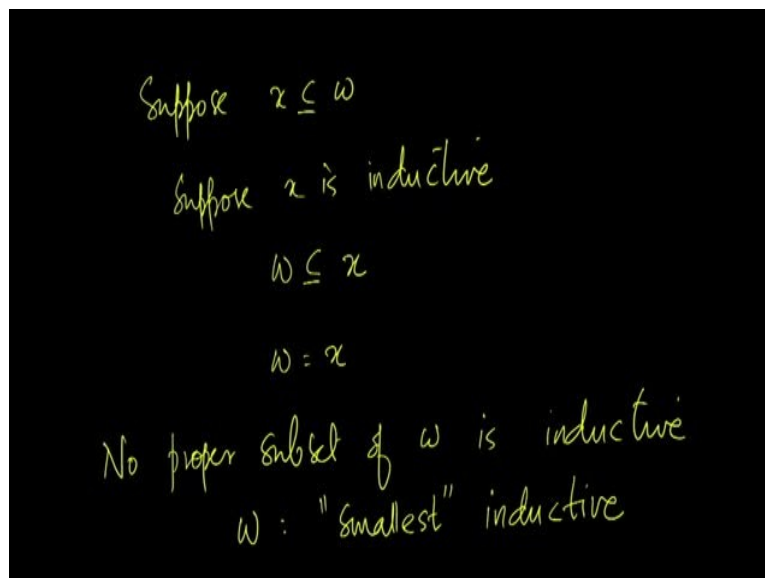 Suppose x ⊆ ω
Suppose x is inductive
ω ⊆ x
ω = x
No proper subset of ω is inductive
ω : "Smallest" inductive